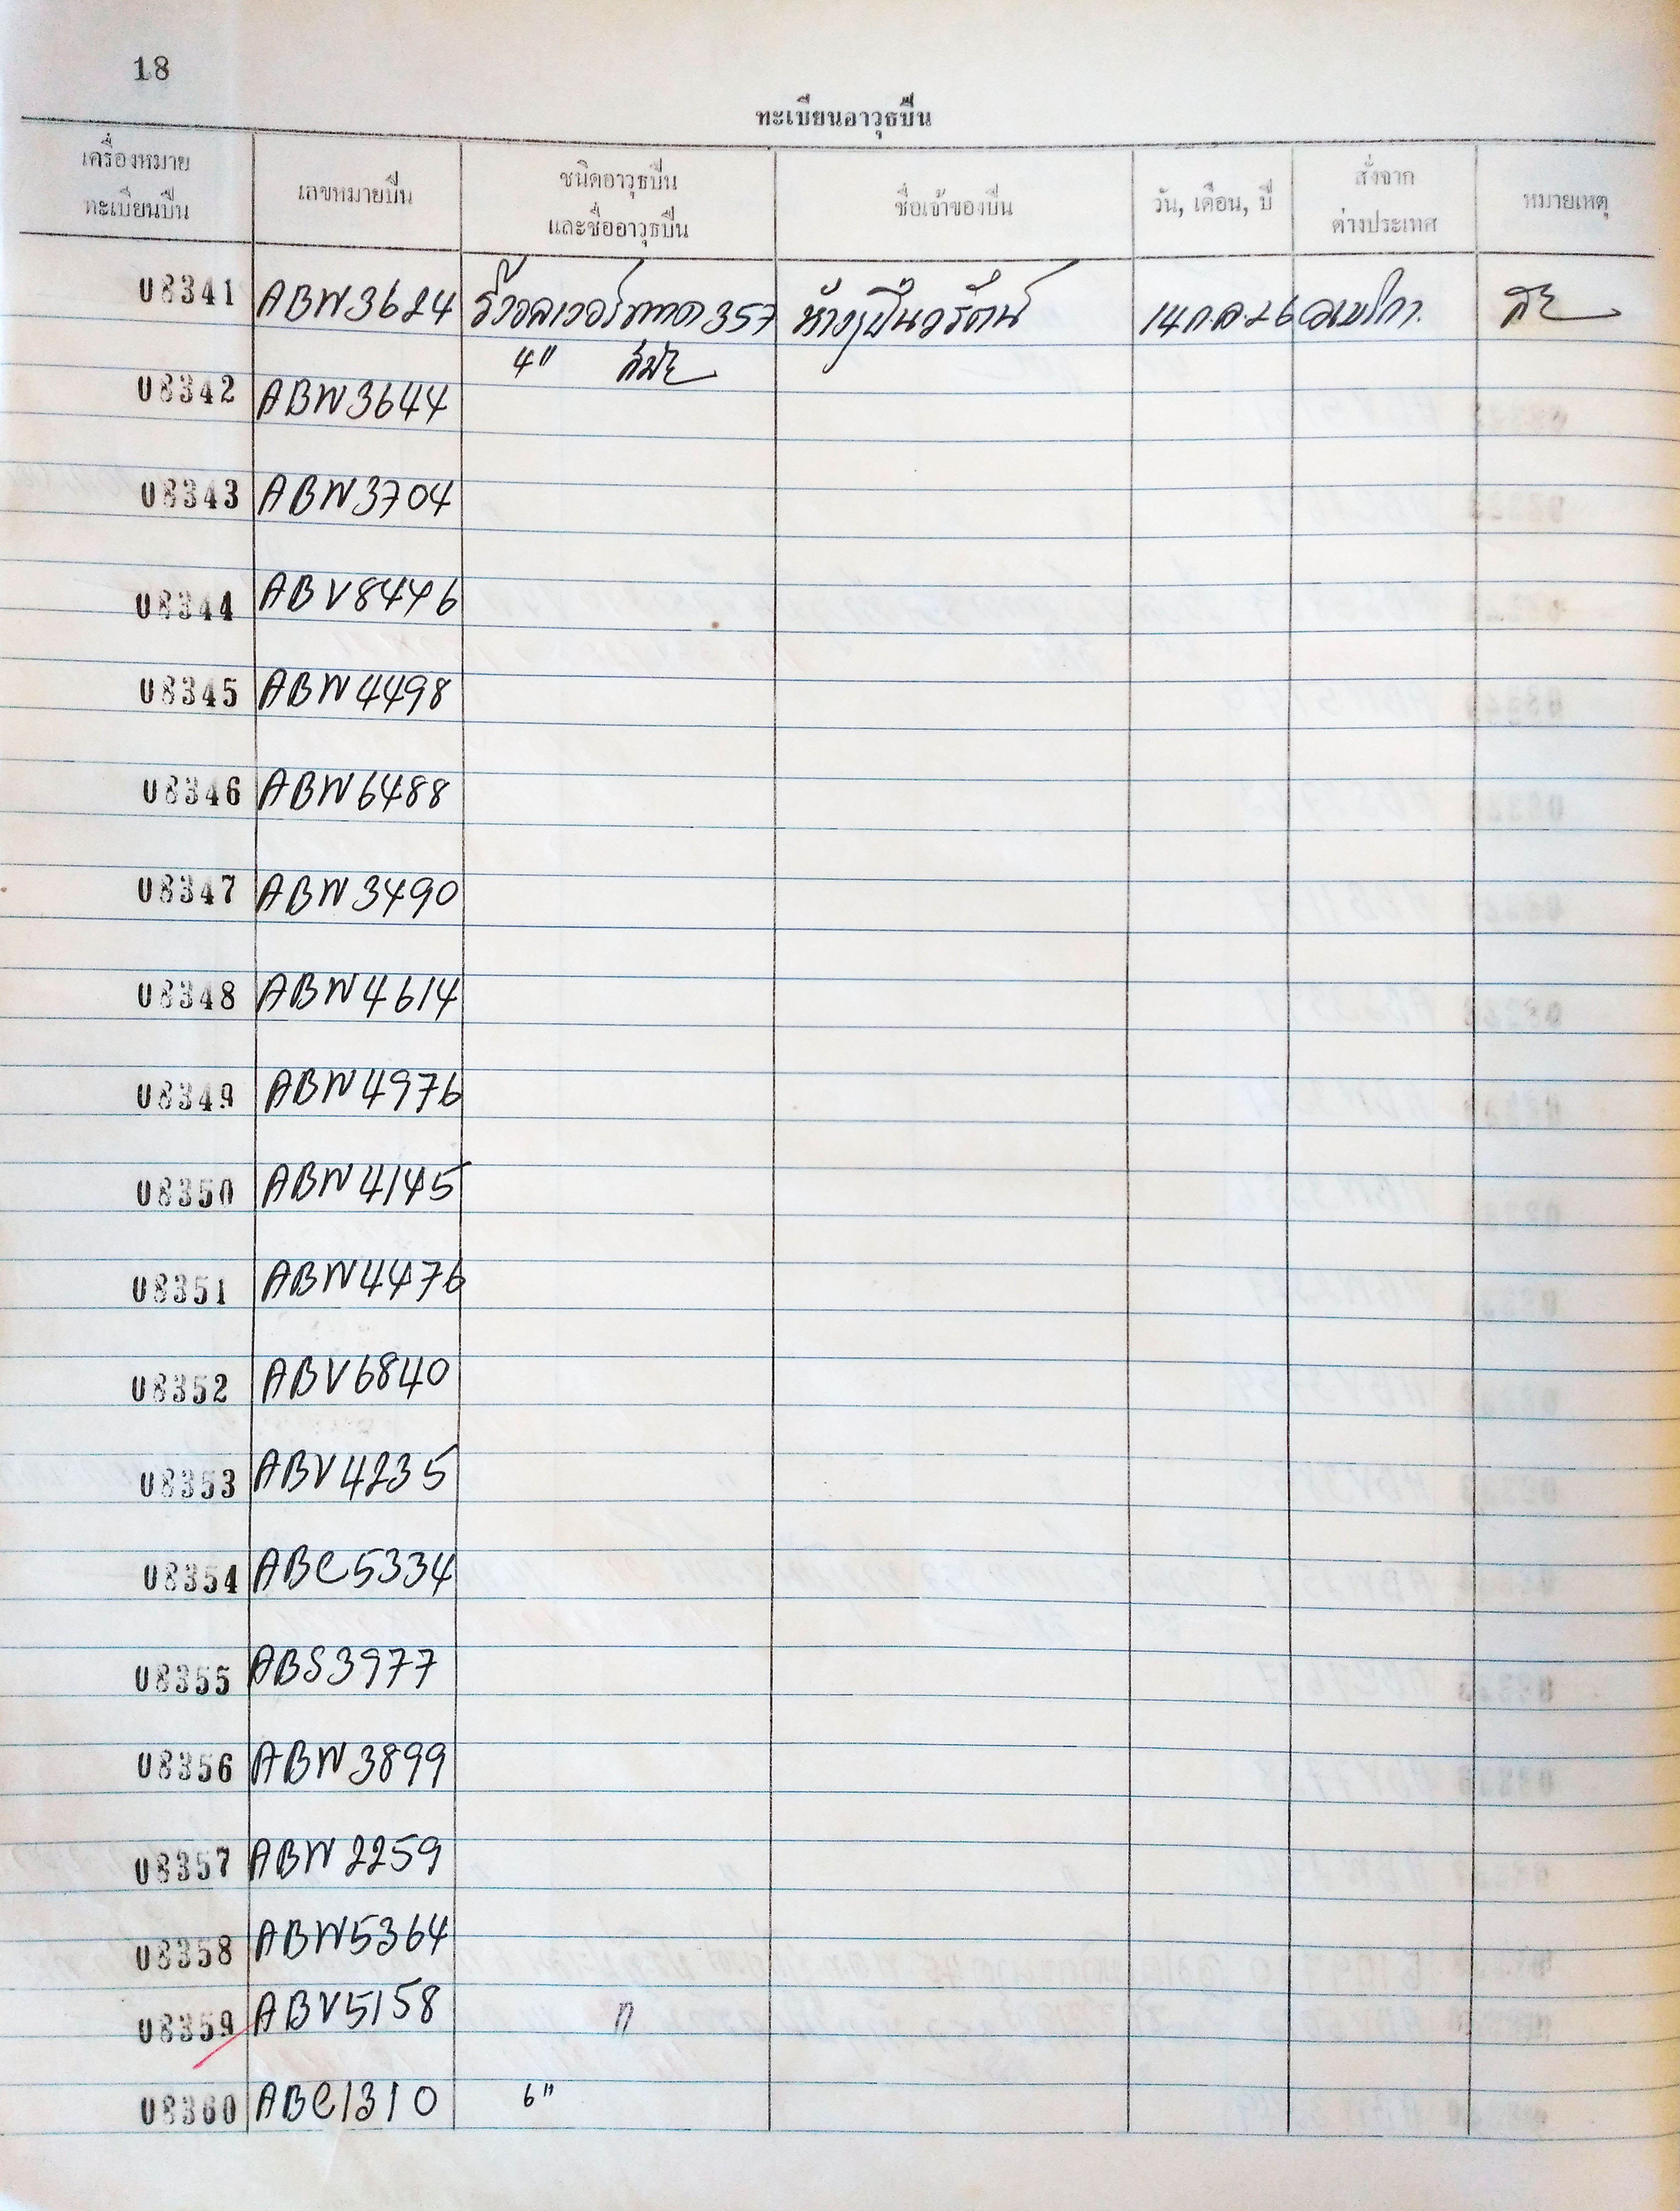 18
ทะเบียนอาวุธปืน
เครื่องหมาย
ทะเบียนปืน
เลขหมายปืน
ชนิดอาวุธปืน
และชื่ออาวุธปืน
ชื่อเจ้าของปืน
วัน, เดือน, ปี
สั่งจาก
ต่างประเทศ
หมายเหตุ
08341 ABW3624 รีวอลเวอร์ขนาด 357 ห้างปืนวรัตน์ 14 ก.ค. 26 อเมริกา
4"
08342 ABW3644
08343 ABW3704
08344 ABV8446
08345 ABW4498
08346 ABW6488
08347 ABW3490
08348 ABW4614
08349 ABW4976
08350 ABW4145
08351 ABW4476
08352 ABV6840
08353 ABV4235
08354 ABC5334
08355 ABS3977
08356 ABW3899
08357 ABW2259
08358 ABW5364
08359 ABV5158 "
08360 ABC1310 6"